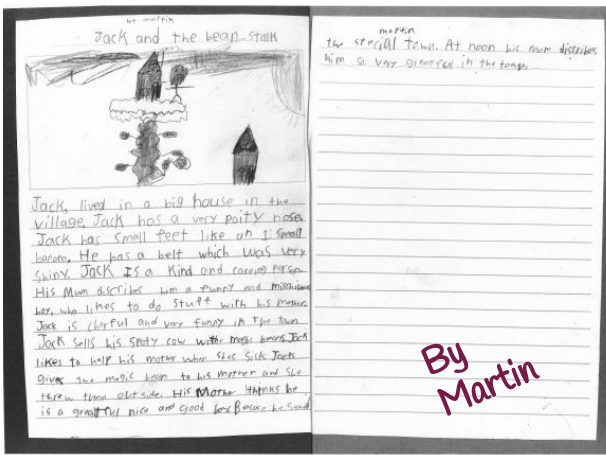 by martin
Jack and the bean stalk
Jack, lived in a big house in the
village. Jack has a very poity nose.
Jack has small feet like an I small
He has a belt which was very
Shiny. Jack Is a Kind and person
His Mum discribes him a funny and
boy, who likes to do Stuff with his mother.
Jack is cherful and very funny in the town
Jack Sells his Spoty cow with magic beans. Jack
likes to help his mother when shes Sick Jack
gives the magic bean to his mother and She
threw them out side. His Mother thinks he
is a greatful nice and good boy Because he
martin
the special town. At noon his mum discribes
him a very greatful in the town.
By
Martin